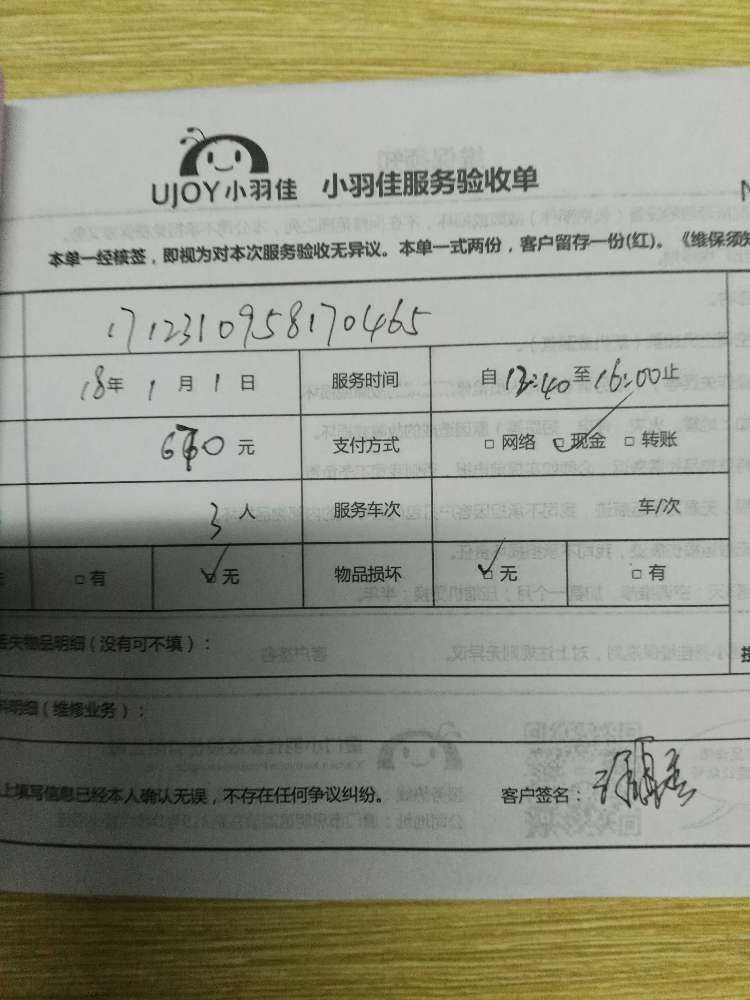 UJOY小羽佳 小羽佳服务验收单
本单一经核签，即视为对本次服务验收无异议。本单一式两份，客户留存一份(红)。《维保须知
1712310958170465
18年 1月 1日 服务时间 自13:40至16:00止
元 支付方式 □网络 ☑现金 □转账
3人 服务车次 车/次
□有 ☑无 物品损坏 ☑无 □有
丢失物品明细(没有可不填)：
料明细(维修业务)：
上填写信息已经本人确认无误，不存在任何争议纠纷。 客户签名：